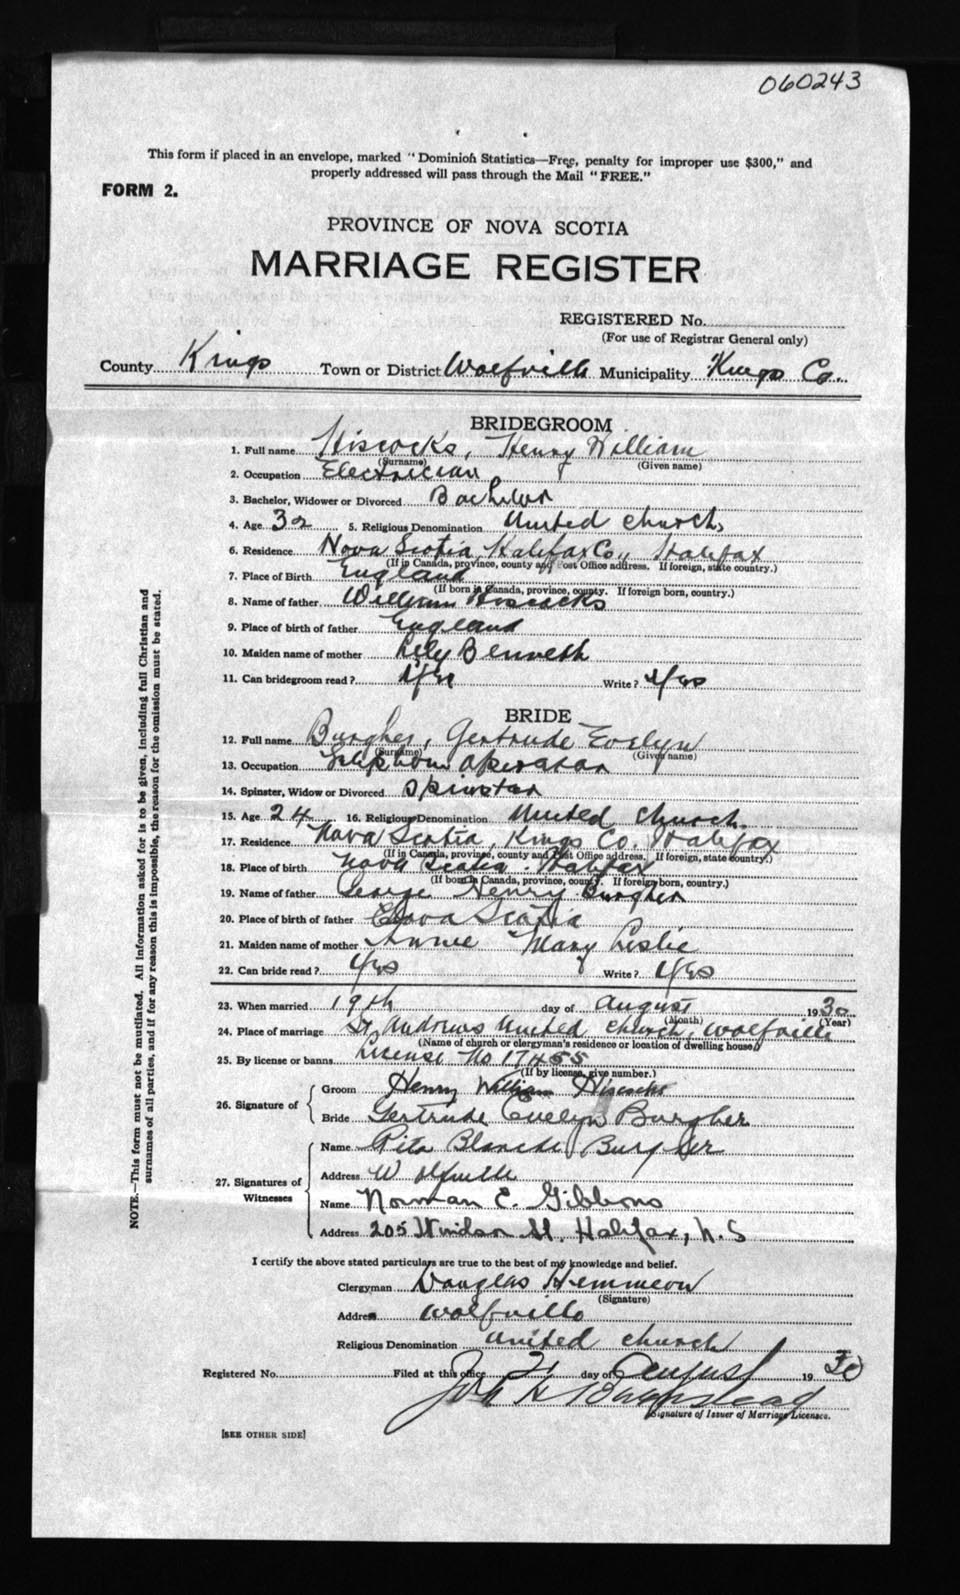 060243
This form if placed in an envelope, marked "Dominion Statistics—Free, penalty for improper use $300," and
properly addressed will pass through the Mail "FREE."
FORM 2.
PROVINCE OF NOVA SCOTIA
MARRIAGE REGISTER
REGISTERED No.
(For use of Registrar General only)
County Kings Town or District Wolfville Municipality Kings Co.
BRIDEGROOM
1. Full name Hiscocks, Henry William
(Surname) (Given name)
2. Occupation Electrician
3. Bachelor, Widower or Divorced Bachelor
4. Age 32 5. Religious Denomination United Church
6. Residence Nova Scotia, Halifax Co., Halifax
(If in Canada, province, county and Post Office address. If foreign, state country.)
7. Place of Birth England
(If born in Canada, province, county. If foreign born, country.)
8. Name of father William Hiscocks
9. Place of birth of father England
10. Maiden name of mother Lily Bennett
11. Can bridegroom read? Yes Write? Yes
BRIDE
12. Full name Burgher, Gertrude Evelyn
(Surname) (Given name)
13. Occupation Telephone Operator
14. Spinster, Widow or Divorced Spinster
15. Age 24 16. Religious Denomination United Church
17. Residence Nova Scotia, Kings Co. Halifax
(If in Canada, province, county and Post Office address. If foreign, state country.)
18. Place of birth Nova Scotia. Halifax
(If born in Canada, province, county. If foreign born, country.)
19. Name of father George Henry Burgher
20. Place of birth of father Nova Scotia
21. Maiden name of mother Annie Mary Leslie
22. Can bride read? Yes Write? Yes
23. When married 19th day of August 1930
(Month) (Year)
24. Place of marriage St Andrews United Church, Wolfville
(Name of church or clergyman's residence or location of dwelling house)
25. By license or banns License No 17455
(If by license, give number.)
26. Signature of Groom Henry William Hiscocks
Bride Gertrude Evelyn Burgher
27. Signatures of Witnesses Name Rita Blanche Burgher
Address Wolfville
Name Norman E. Gibbons
Address 205 Windsor St, Halifax, N.S
I certify the above stated particulars are true to the best of my knowledge and belief.
Clergyman Douglas Hemmeon
(Signature)
Address Wolfville
Religious Denomination United Church
Registered No. Filed at this office 21 day of August 1930
Signature of Issuer of Marriage Licenses.
[SEE OTHER SIDE]
NOTE.—This form must not be mutilated. All information asked for is to be given, including full Christian and
surnames of all parties, and if for any reason this is impossible, the reason for the omission must be stated.